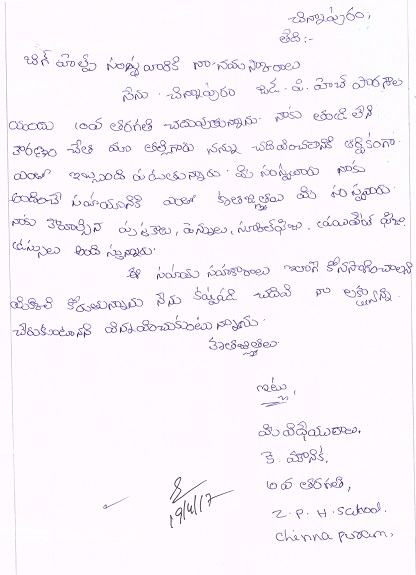 చిన్నాపురం,
తేది:-
బిగ్ హెల్ప్ సంస్థ వారికి నా నమస్కారాలు
నేను చిన్నాపురం జడ్. పి. హెచ్ పాఠశాల
యందు 10వ తరగతి చదువుతున్నాను. నాకు తండ్రి లేని
కారణం చేత మా తల్లిగారు నన్ను చదివించటానికి ఆర్థికంగా
ఎంతో ఇబ్బంది పడుతున్నారు. మీ సంస్థవారు నాకు
అందించే సహాయానికి ఎంతో కృతజ్ఞతలు మీ సంస్థవారు
నాకు కావాల్సిన పుస్తకాలు, పెన్నులు, స్కూల్ ఫీజు, ట్యూషన్ ఫీజు
డ్రస్సులు అందిస్తున్నారు.
ఈ సహాయ సహకారాలు ఇలాగే కొనసాగించాలని
మిమ్మల్ని కోరుతున్నాను నేను కష్టపడి చదివి నా లక్ష్యాన్ని
చేరుకుంటానని విన్నవించుకుంటున్నాను.
కృతజ్ఞతలు.
ఇట్లు,
మీ విధేయురాలు,
కె. మౌనిక,
10వ తరగతి,
Z. P. H. School.
Chinnapuram,
19/4/17